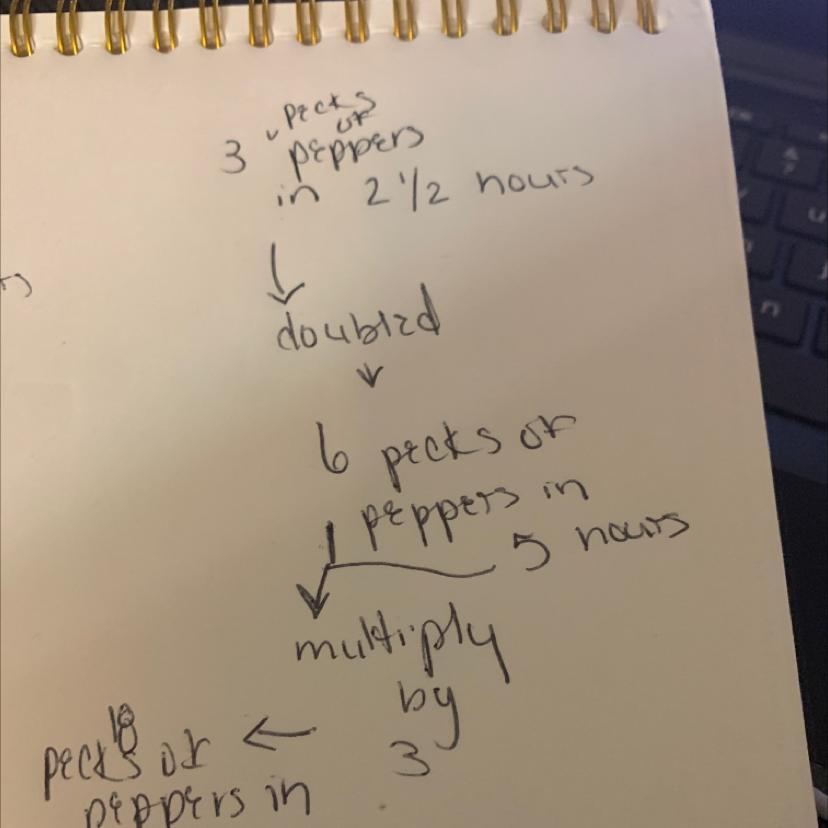 pecks
of
3 peppers
in 2 1/2 hours
doubled
6 pecks of
peppers in
5 hours
multiply
by
3
18
pecks of
peppers in